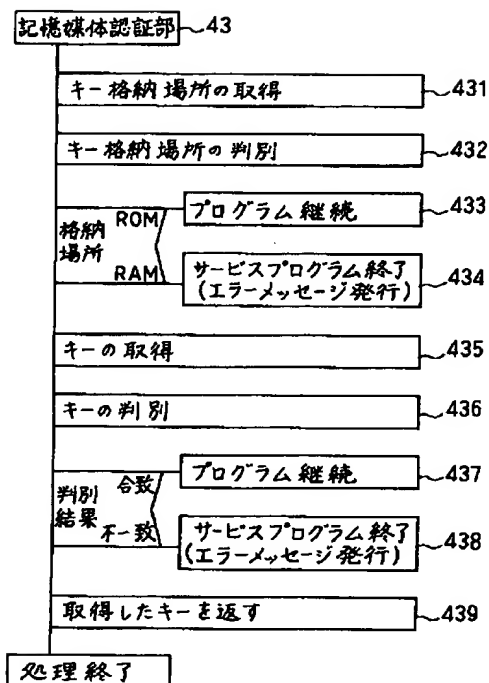 記憶媒体認証部 43
キー格納場所の取得 431
キー格納場所の判別 432
格納場所
ROM
プログラム継続 433
RAM
サービスプログラム終了
(エラーメッセージ発行) 434
キーの取得 435
キーの判別 436
判別結果
合致
プログラム継続 437
不一致
サービスプログラム終了
(エラーメッセージ発行) 438
取得したキーを返す 439
処理終了